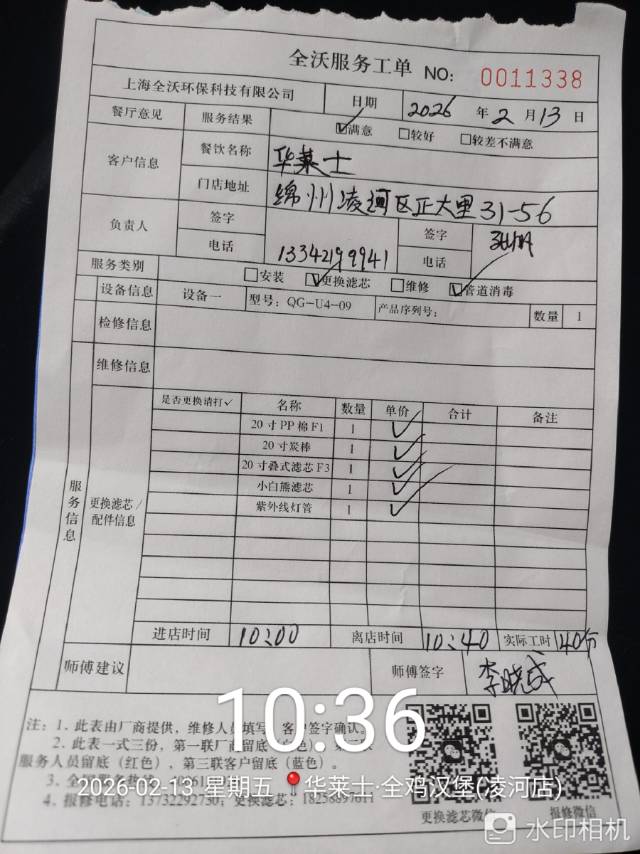 全沃服务工单 NO: 0011338
上海全沃环保科技有限公司 日期 2026 年 2 月 13 日
餐厅意见 服务结果 ☑满意 □较好 □较差不满意
客户信息 餐饮名称 华莱士
门店地址 绵州凌河区正大里31-56
负责人 签字 签字
电话 13342199941 电话
服务类别 □安装 ☑更换滤芯 □维修 ☑管道消毒
设备信息 设备一 型号: QG-U4-09 产品序列号: 数量 1
检修信息
维修信息
服务信息
更换滤芯/配件信息
是否更换请打✓ 名称 数量 单价 合计 备注
20寸PP棉F1 1 ✓
20寸炭棒 1 ✓
20寸叠式滤芯F3 1 ✓
小白熊滤芯 1 ✓
紫外线灯管 1 ✓
进店时间 10:00 离店时间 10:40 实际工时 40分
师傅建议 师傅签字 李晓成
10:36
注: 1. 此表由厂商提供, 维修人员填写, 客户签字确认。
2. 此表一式三份, 第一联厂商留底
服务人员留底(红色), 第三联客户留底(蓝色)。
3. 全国服务热线
2026-02-13 星期五 华莱士·全鸡汉堡(凌河店)
4. 报修电话: 13732292730; 微信: 18258897611
更换滤芯微信 报修微信
水印相机